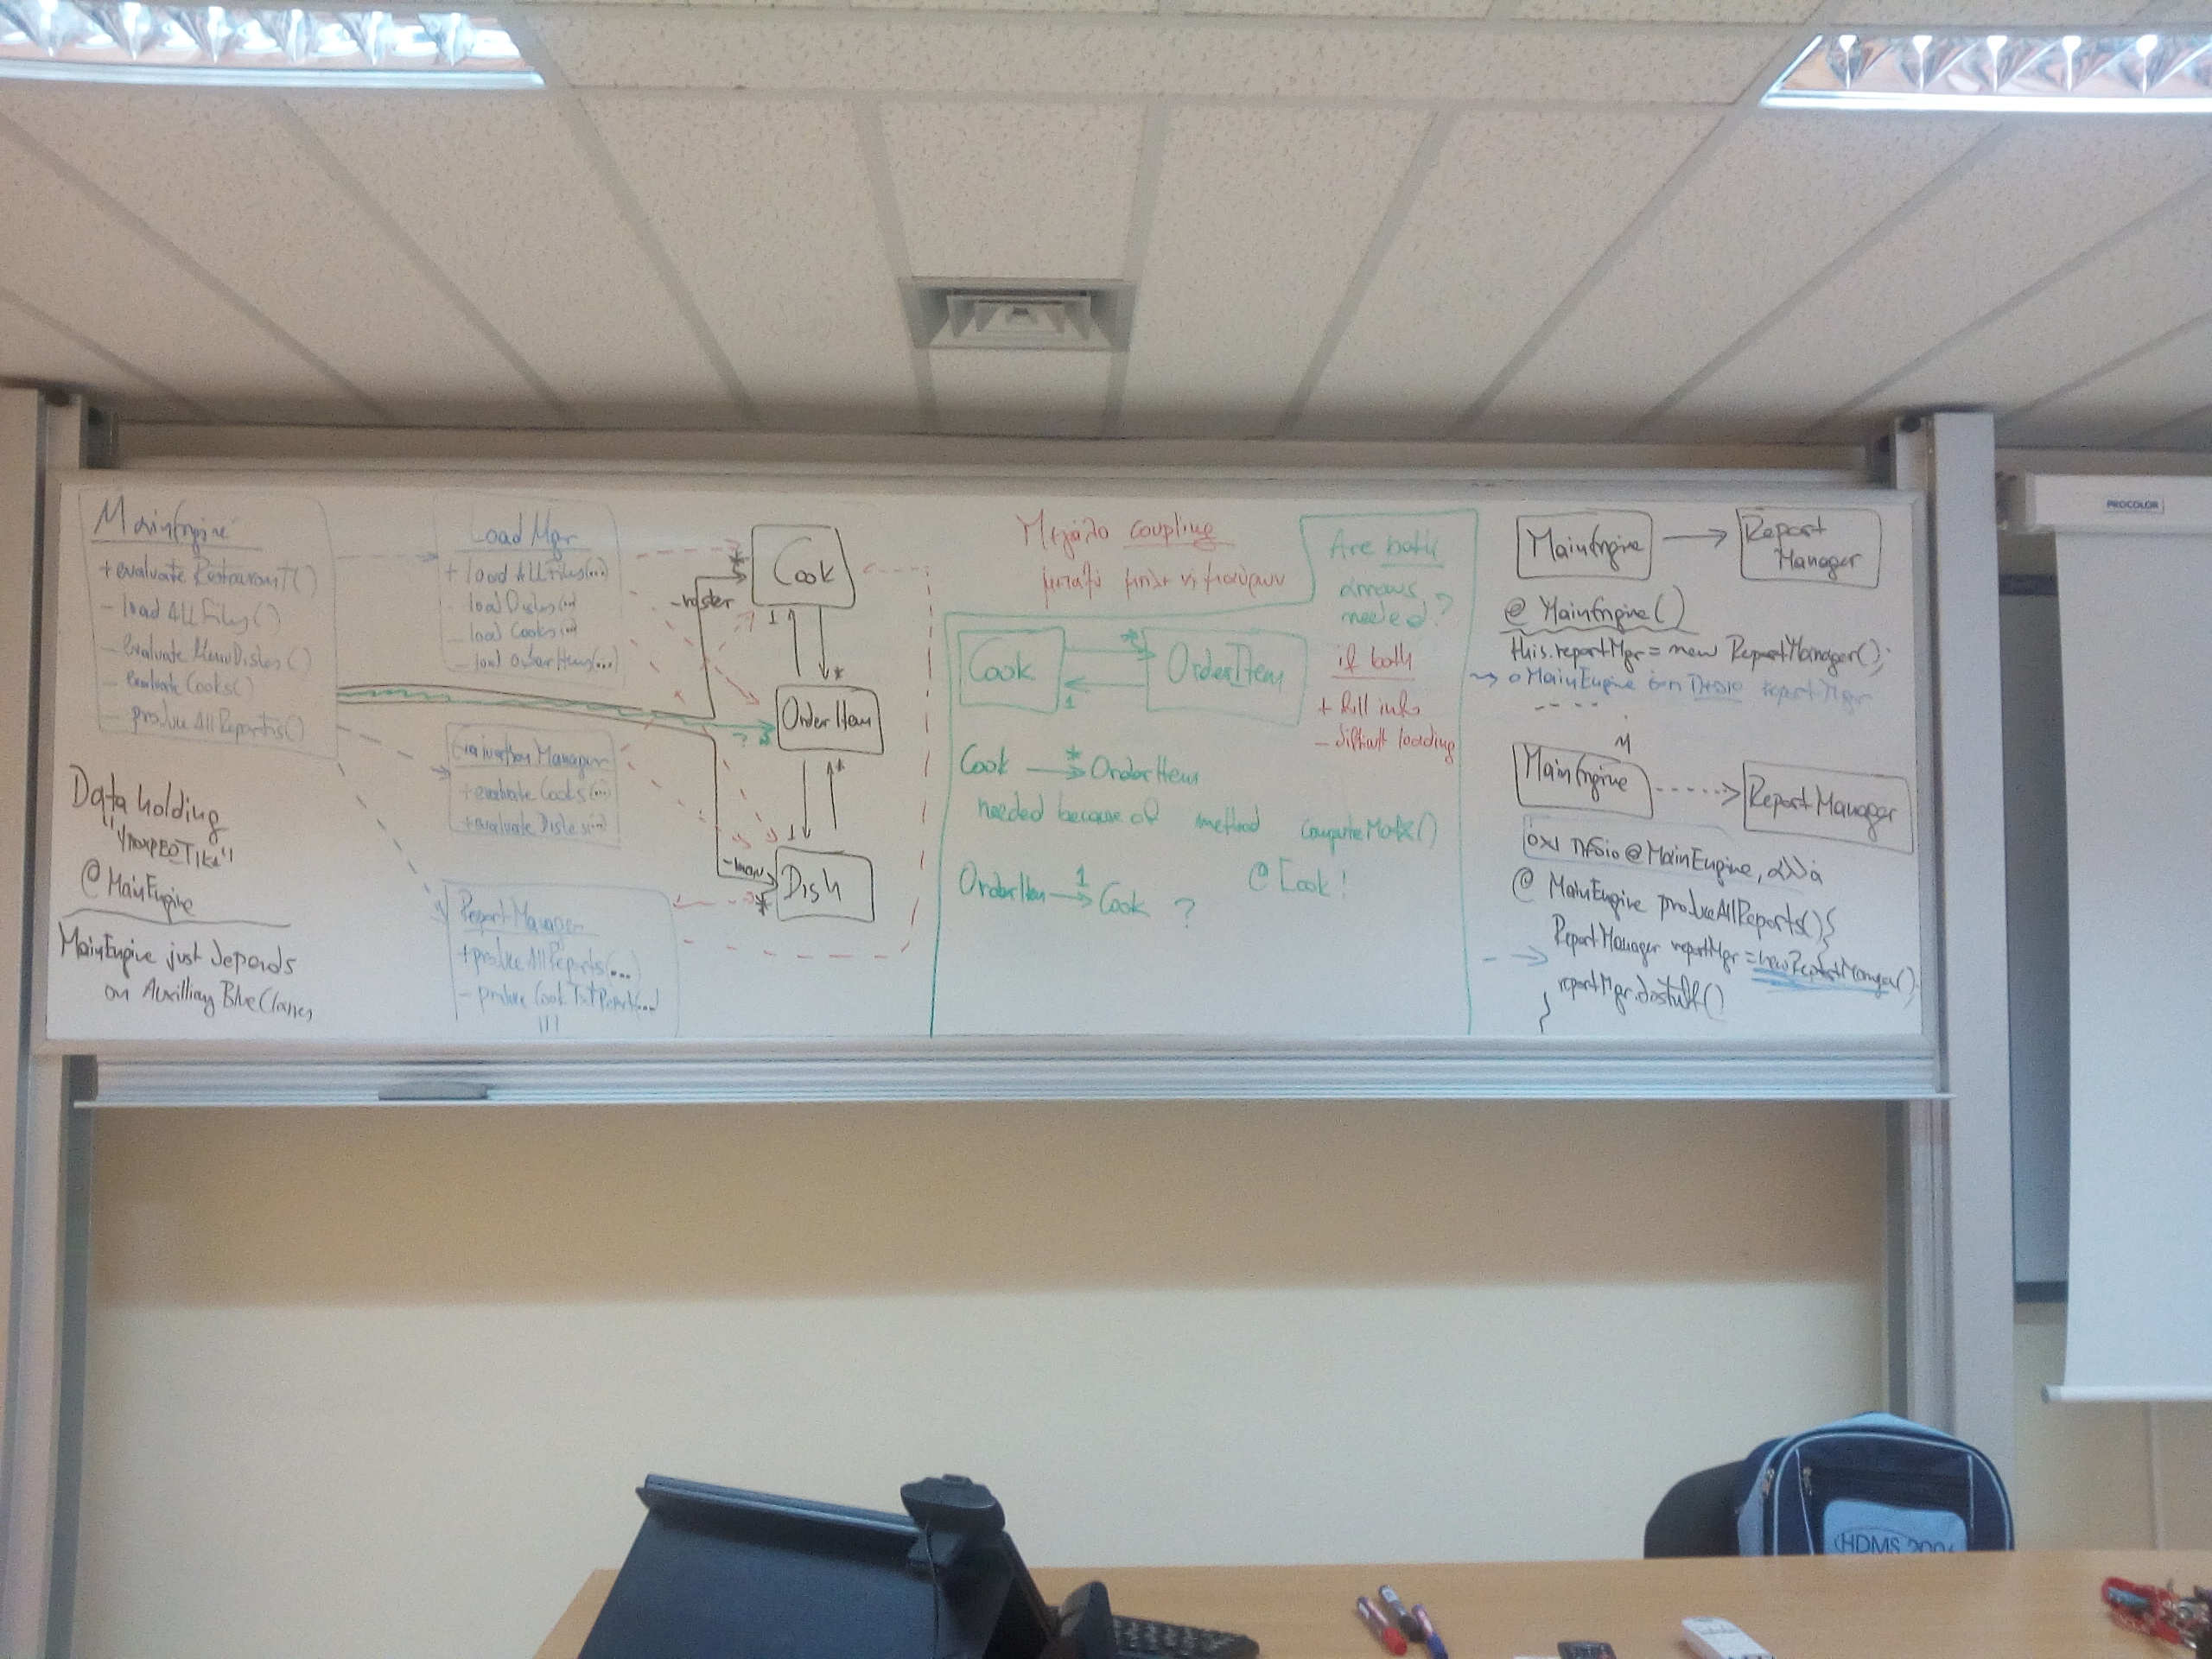 MainEngine
+ evaluateRestaurant()
- loadAllFiles()
- evaluateMenuDishes()
- evaluateCooks()
- produceAllReports()
Data holding
"ΥΠΟΧΡΕΩΤΙΚΑ"
@ MainEngine
MainEngine just depends
on Auxilliary Blue Classes
Load Mgr
+ loadAllFiles(...)
- loadDishes(...)
- loadCooks(...)
- loadOrderItems(...)
Evaluation Manager
+ evaluateCooks(...)
+ evaluateDishes(...)
ReportManager
+ produceAllReports(...)
- produceCookTxtReport(...)
*
Cook
-roster
1
*
OrderItem
? *
*
1
-menu
*
Dish
Μεγάλο coupling
μεταξύ μπλε κ μαύρων
Are both
arrows
needed?
if both
+ full info
- difficult loading
Cook
*
1
OrderItem
Cook * OrderItem
needed because of method computeMo
@ Cook!
OrderItem 1 Cook ?
MainEngine
Report
Manager
@ MainEngine()
this.reportMgr = new ReportManager();
ο MainEngine έχει πεδίο reportMgr
ή
MainEngine
ReportManager
όχι πεδίο @ MainEngine, αλλά
@ MainEngine produceAllReports(){
ReportManager reportMgr = new ReportManager();
reportMgr.dostuff()
}
PROCOLOR
HDMS 200